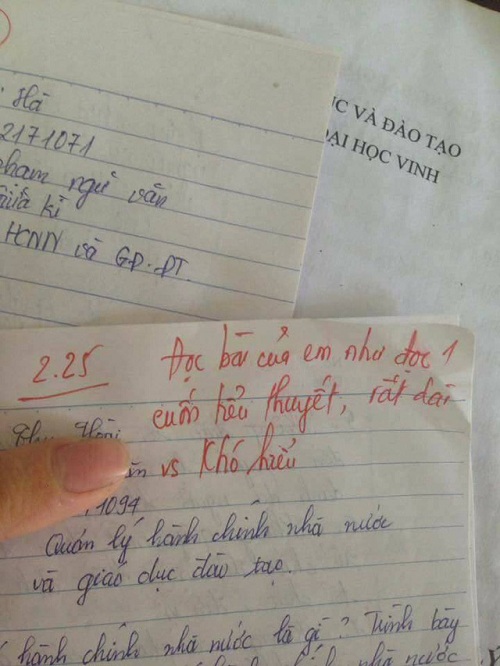 Hà
2171071
phạm ngữ văn
giữa kì
HCNN và GD-ĐT
ỤC VÀ ĐÀO TẠO
ĐẠI HỌC VINH
2.25
Đọc bài của em như đọc 1
cuốn tiểu thuyết, rất dài
vs khó hiểu
Hoài
1094
Quản lý hành chính nhà nước
và giáo dục đào tạo.
hành chính nhà nước là gì? Trình bày
hành chính nhà nước